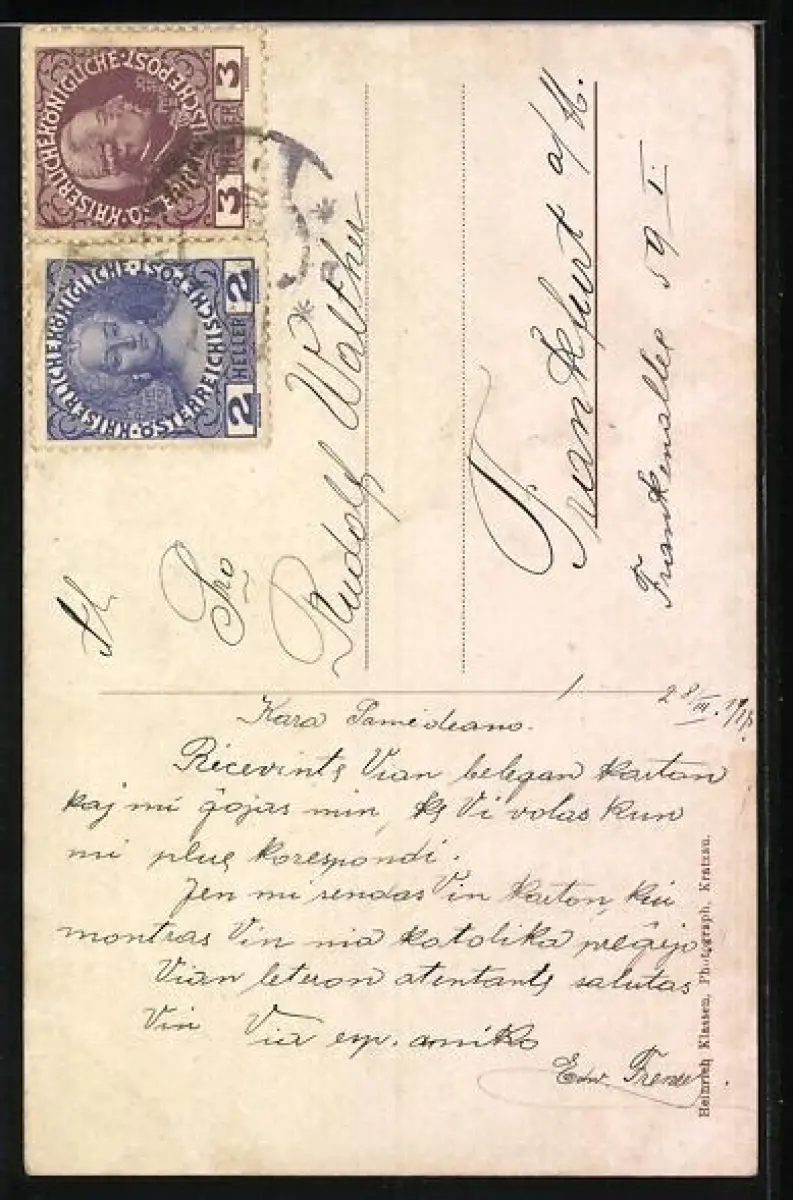 KAISERLICHEKÖNIGLICHE·ÖSTERREICHISCHE·POST·
3 HELLER 3
KAISERLICHEKÖNIGLICHE·ÖSTERREICHISCHE·POST·
2 HELLER 2
Sro
Rudolf Walther
Frankfurt a/M.
Frankenallee 59 I
28/III.
Kara Samideano.
Ricevinte Vian belegan karton
kaj mi ĝojas min, ke Vi volas kun
mi plue korespondi.
Jen mi sendas Vin karton, kiu
montras Vin nia katolika preĝejo
Vian leteron atentante salutas
Vin Via esp. amiko
Edw.
Heinrich Klassen, Photograph, Kratzau.